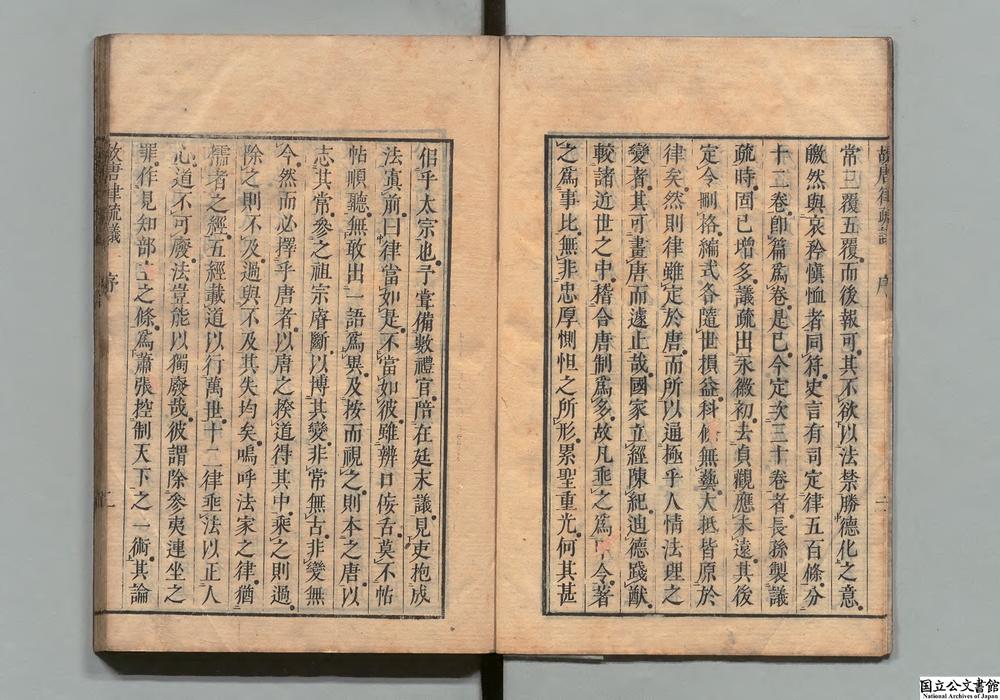 故唐律疏議　序　二
常三覆五覆而後報可其不欲以法禁勝德化之意
皦然與哀矜慎恤者同符史言有司定律五百條分
十二卷卽篇爲卷是已今定次三十卷者長孫製議
疏時固已增多議疏出永徽初去貞觀應未遠其後
定令刪格編式各隨世損益科條無藝大抵皆原於
律矣然則律雖定於唐而所以通極乎人情法理之
變者其可畫唐而遽止哉國家立經陳紀迪德踐猷
較諸近世之中稽合唐制爲多故凡乘之爲令著
之爲事比無非忠厚惻怛之所形累聖重光何其甚
侣乎太宗也予甞備數禮官陪在廷末議見吏抱成
法寘前曰律當如是不當如彼雖辨口佞舌莫不帖
帖順聽無敢出一語爲異及按而視之則本之唐以
志其常參之祖宗睿斷以博其變非常無古非變無
今然而必擇乎唐者以唐之揆道得其中乘之則過
除之則不及過與不及其失均矣嗚呼法家之律猶
儒者之經五經載道以行萬世十二律垂法以正人
心道不可廢法豈能以獨廢哉彼謂除參夷連坐之
罪作見知部主之條爲蕭張控制天下之一術其論
故唐律疏議　序　二
国立公文書館
National Archives of Japan